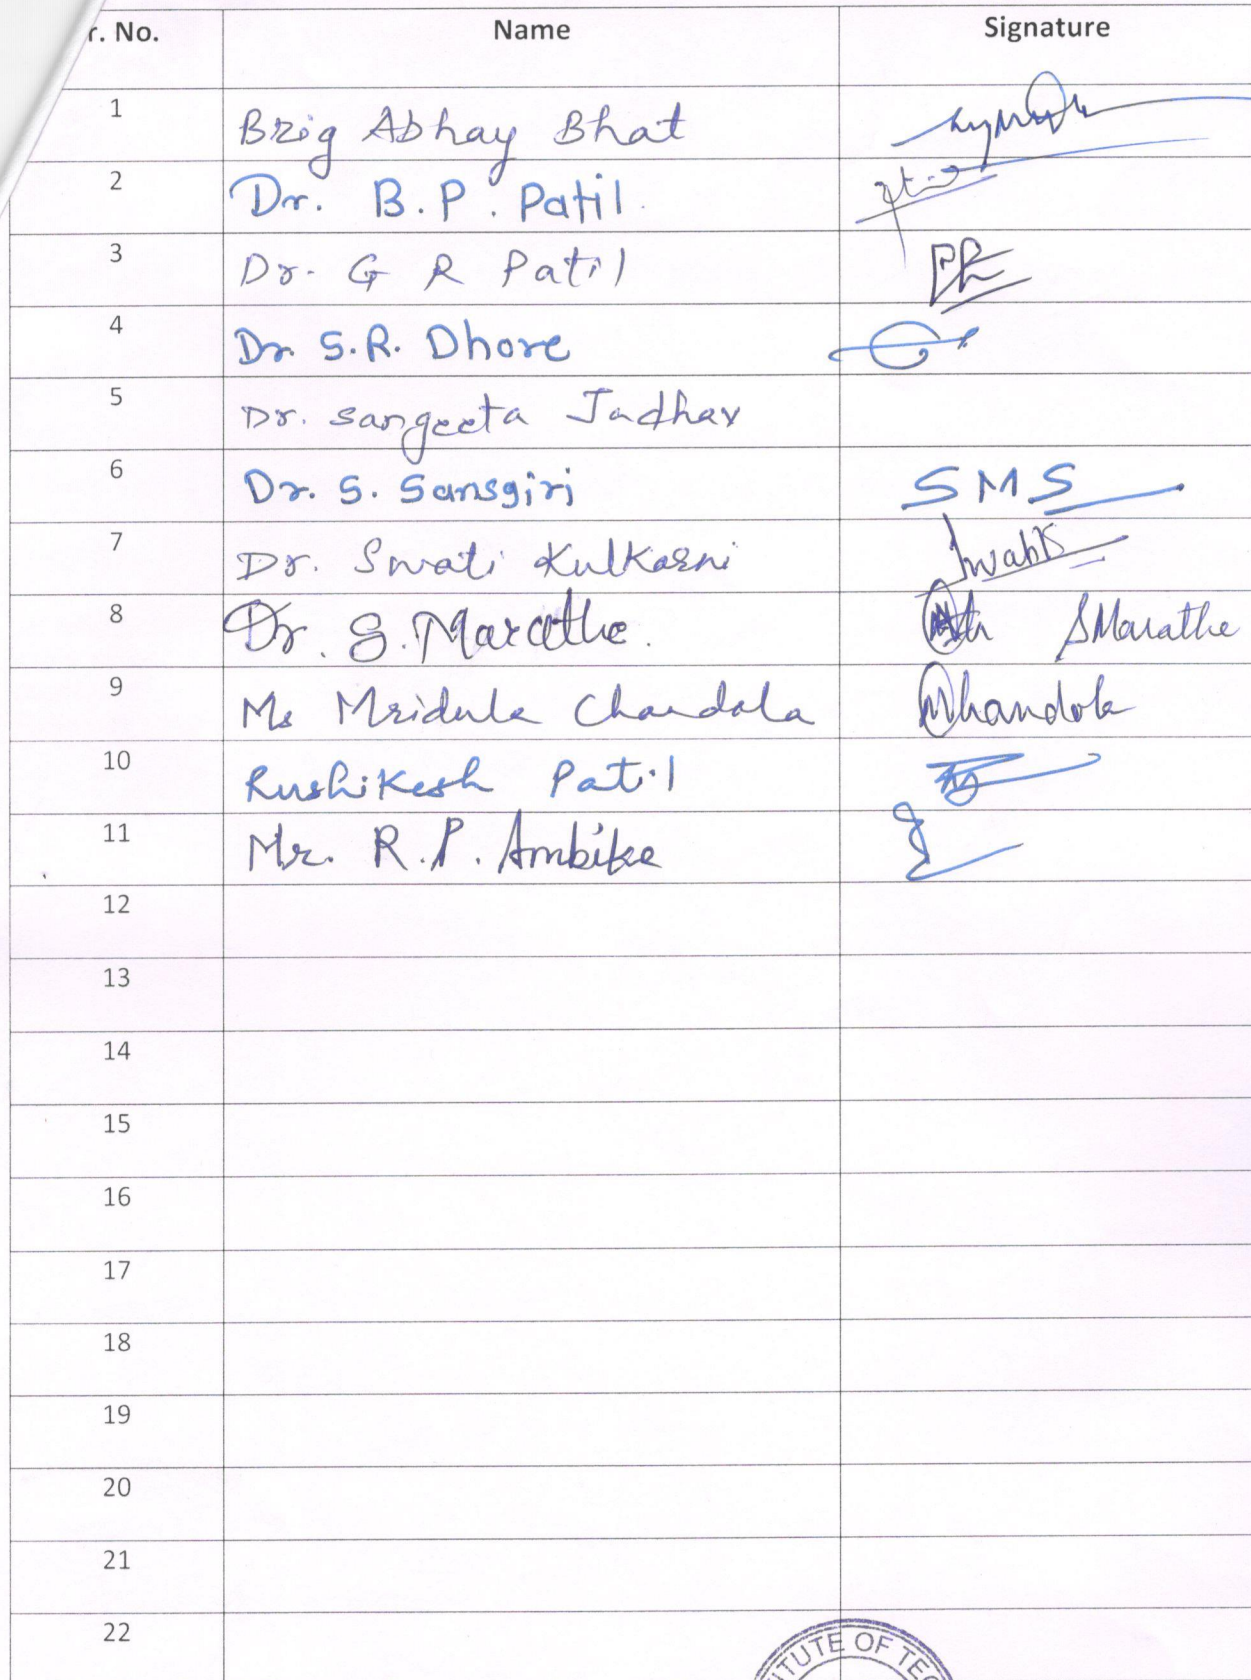 r. No. Name Signature
1 Brig Abhay Bhat
2 Dr. B.P. Patil.
3 Dr. G R Patil
4 Dr. S.R. Dhore
5 Dr. Sangeeta Jadhav
6 Dr. S. Sansgiri SMS
7 Dr. Swati Kulkarni
8 Dr. S. Marathe. SMarathe
9 Ms Mridula Chandola
10 Rushikesh Patil
11 Mr. R.P. Ambike
12
13
14
15
16
17
18
19
20
21
22
ITUTE OF TEC